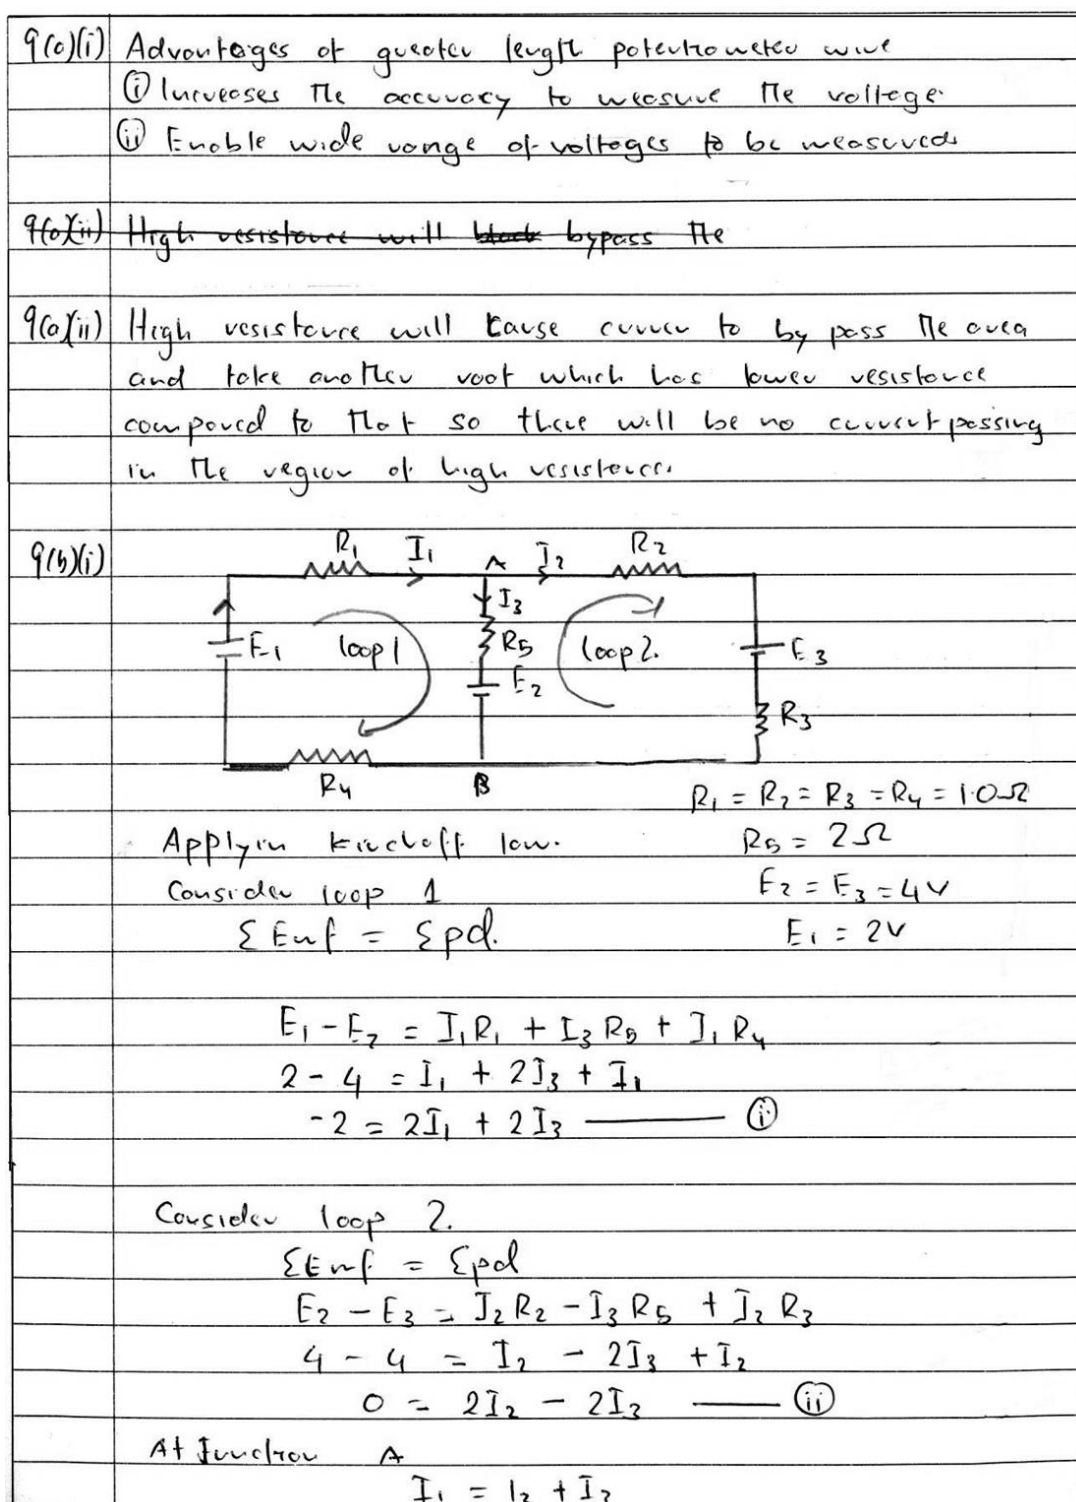 9(a)(i) Advantages of greater length potentiometer wire
(i) Increases the accuracy to measure the voltage.
(ii) Enable wide range of voltages to be measured.
9(a)(ii) High resistance will block bypass the
9(a)(ii) High resistance will cause curren to by pass the area
and take another root which has lower resistance
compared to that so there will be no current passing
in the region of high resistance.
9(b)(i)
R₁ I₁ A I₂ R₂
I₃
E₁ loop 1 R₅ loop 2. E₃
E₂
R₃
R₄ B
R₁ = R₂ = R₃ = R₄ = 1.0Ω
Applyin kirchoff law. R₅ = 2Ω
Consider loop 1 E₂ = E₃ = 4V
ΣEmf = Σpd. E₁ = 2V
E₁ - E₂ = I₁R₁ + I₃R₅ + I₁R₄
2 - 4 = I₁ + 2I₃ + I₁
-2 = 2I₁ + 2I₃ ——— (i)
Consider loop 2.
ΣEmf = Σpd
E₂ - E₃ = I₂R₂ - I₃R₅ + I₂R₃
4 - 4 = I₂ - 2I₃ + I₂
0 = 2I₂ - 2I₃ ——— (ii)
At Junction A
I₁ = I₂ + I₃